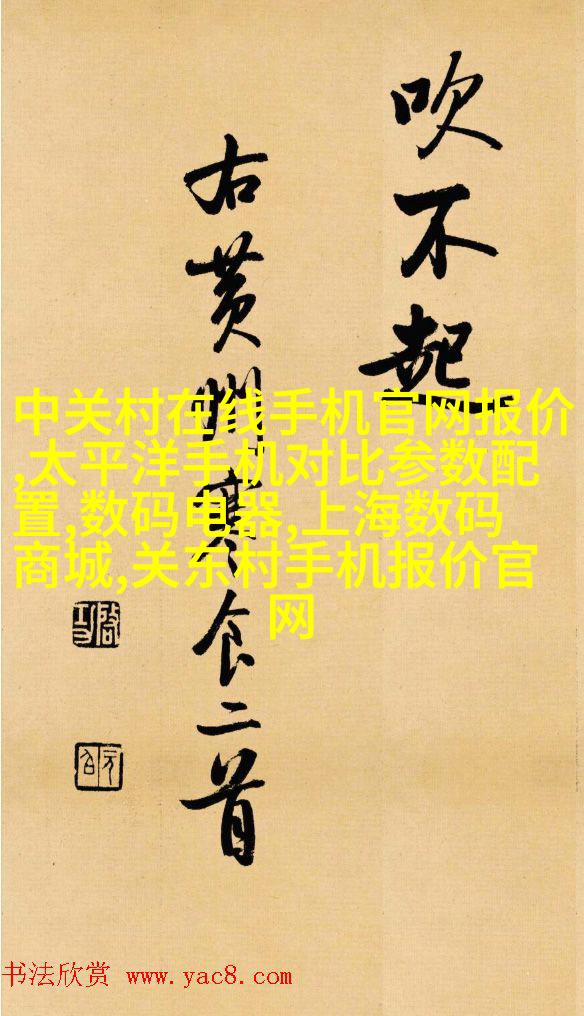 吹不起
右黄州寒食二首
中关村在线手机官网报价
,太平洋手机对比参数配
置,数码电器,上海数码
商城,关东村手机报价官
网
启功
元白
书法欣赏 www.yac8.com